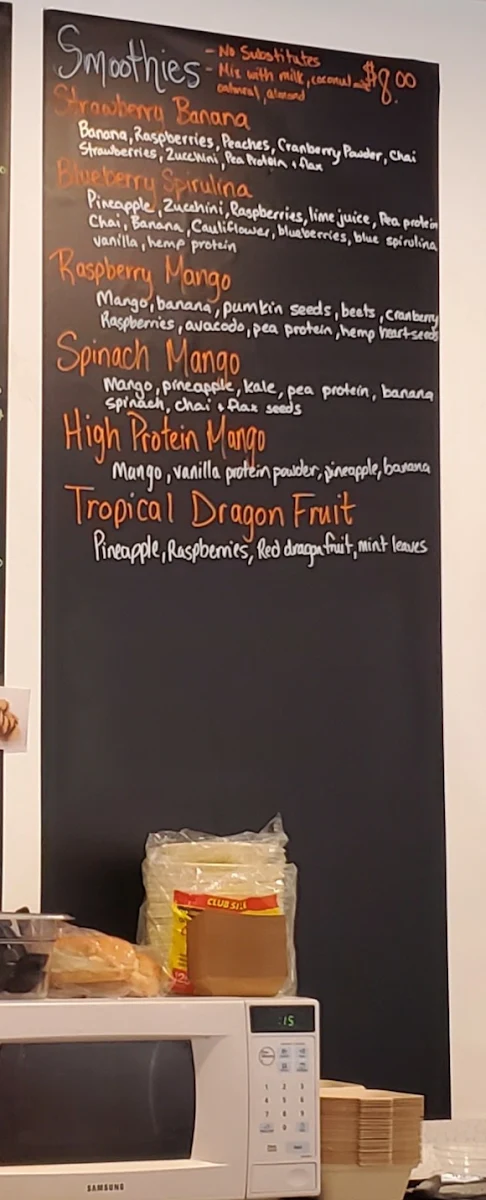 Smoothies
- No Substitutes
- Mix with milk, coconut milk
oatmeal, almond
$8.00
Strawberry Banana
Banana, Raspberries, Peaches, Cranberry Powder, Chai
Strawberries, Zucchini, Pea Protein + flax
Blueberry Spirulina
Pineapple, Zucchini, Raspberries, lime juice, Pea protein
Chai, Banana, Cauliflower, blueberries, blue spirulina
vanilla, hemp protein
Raspberry Mango
Mango, banana, pumkin seeds, beets, cranberry
Raspberries, avacado, pea protein, hemp heart seeds
Spinach Mango
Mango, pineapple, kale, pea protein, banana
spinach, chai + flax seeds
High Protein Mango
Mango, vanilla protein powder, pineapple, banana
Tropical Dragon Fruit
Pineapple, Raspberries, Red dragon fruit, mint leaves
CLUB SIZE
:15
1 2 3
4 5 6
7 8 9
0
SAMSUNG